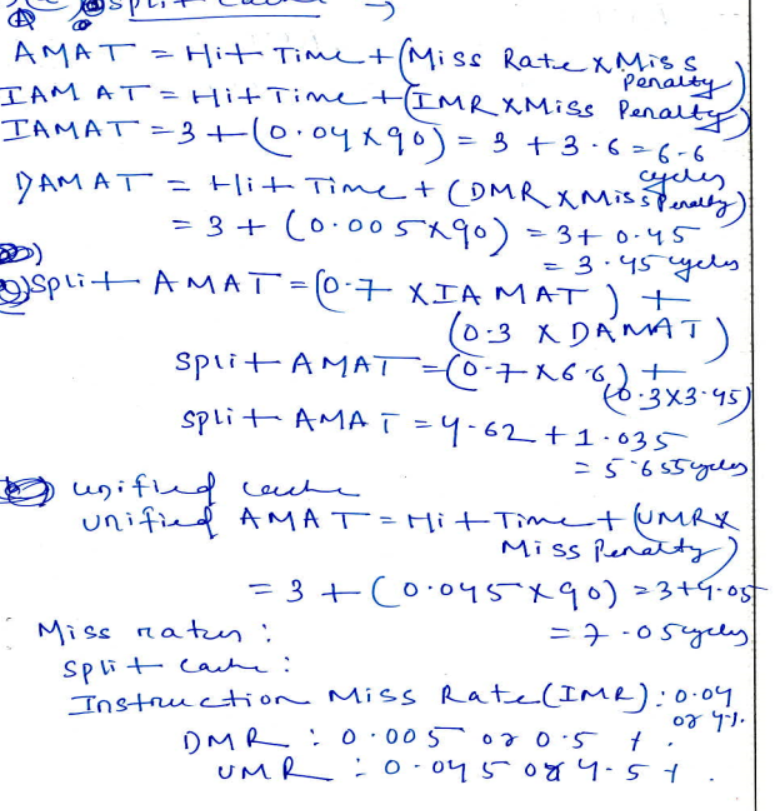 A) Split Cache →
AMAT = Hit Time + (Miss Rate x Miss Penalty)
IAMAT = Hit Time + (IMR x Miss Penalty)
IAMAT = 3 + (0.04 x 90) = 3 + 3.6 = 6.6 cycles
DAMAT = Hit Time + (DMR x Miss Penalty)
= 3 + (0.005 x 90) = 3 + 0.45
= 3.45 cycles
Split AMAT = (0.7 x IAMAT) +
(0.3 x DAMAT)
Split AMAT = (0.7 x 6.6) +
(0.3 x 3.45)
Split AMAT = 4.62 + 1.035
= 5.655 cycles
unified cache
unified AMAT = Hit Time + (UMR x
Miss Penalty)
= 3 + (0.045 x 90) = 3 + 4.05
= 7.05 cycles
Miss rates :
Split cache :
Instruction Miss Rate (IMR) : 0.04
or 4%.
DMR : 0.005 or 0.5 %.
UMR : 0.045 or 4.5 %.